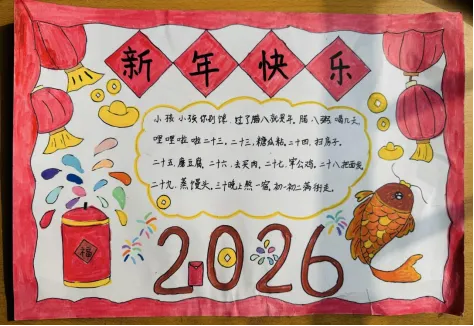 新年快乐
小孩小孩你别馋.过了腊八就是年.腊八粥.喝几天.
哩哩啦啦二十三.二十三.糖瓜粘.二十四.扫房子.
二十五.磨豆腐.二十六.去买肉.二十七.宰公鸡.二十八.把面发.
二十九.蒸馒头.三十晚上熬一宿.初一初二满街走.
福
2026